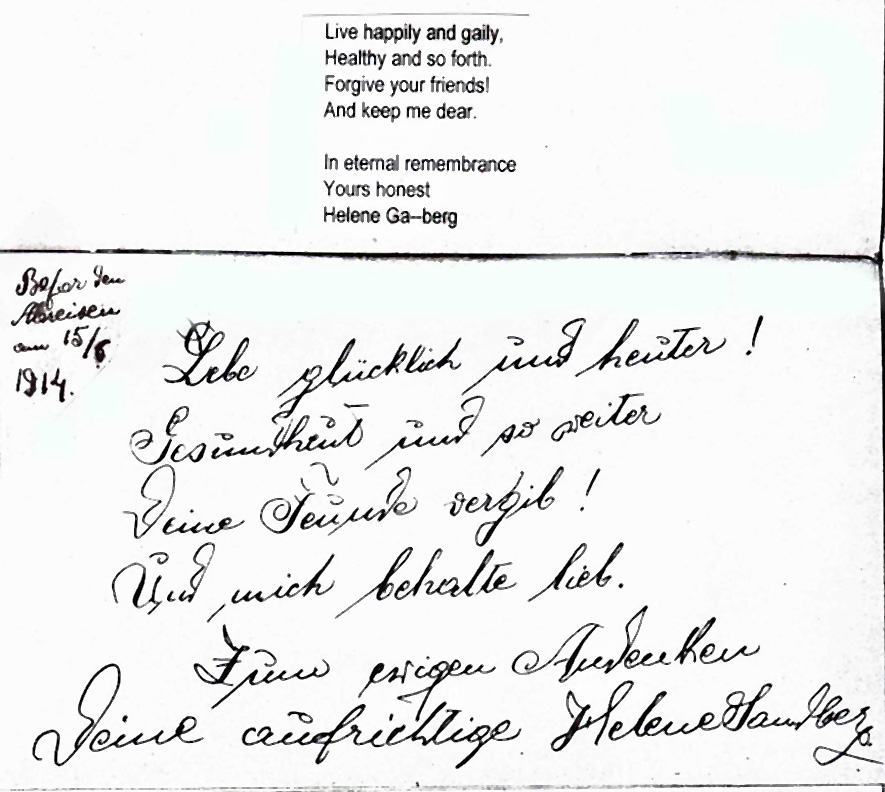 Live happily and gaily,
Healthy and so forth.
Forgive your friends!
And keep me dear.
In eternal remembrance
Yours honest
Helene Ga--berg
Befor den
Abreisen
am 15/6
1914.
Lebe glücklich und heuter!
Gesundheut und so weiter
Deine Feunde vergib!
Und mich behalte lieb.
Zum ewigen Andenken
Deine aufrichtige Helene